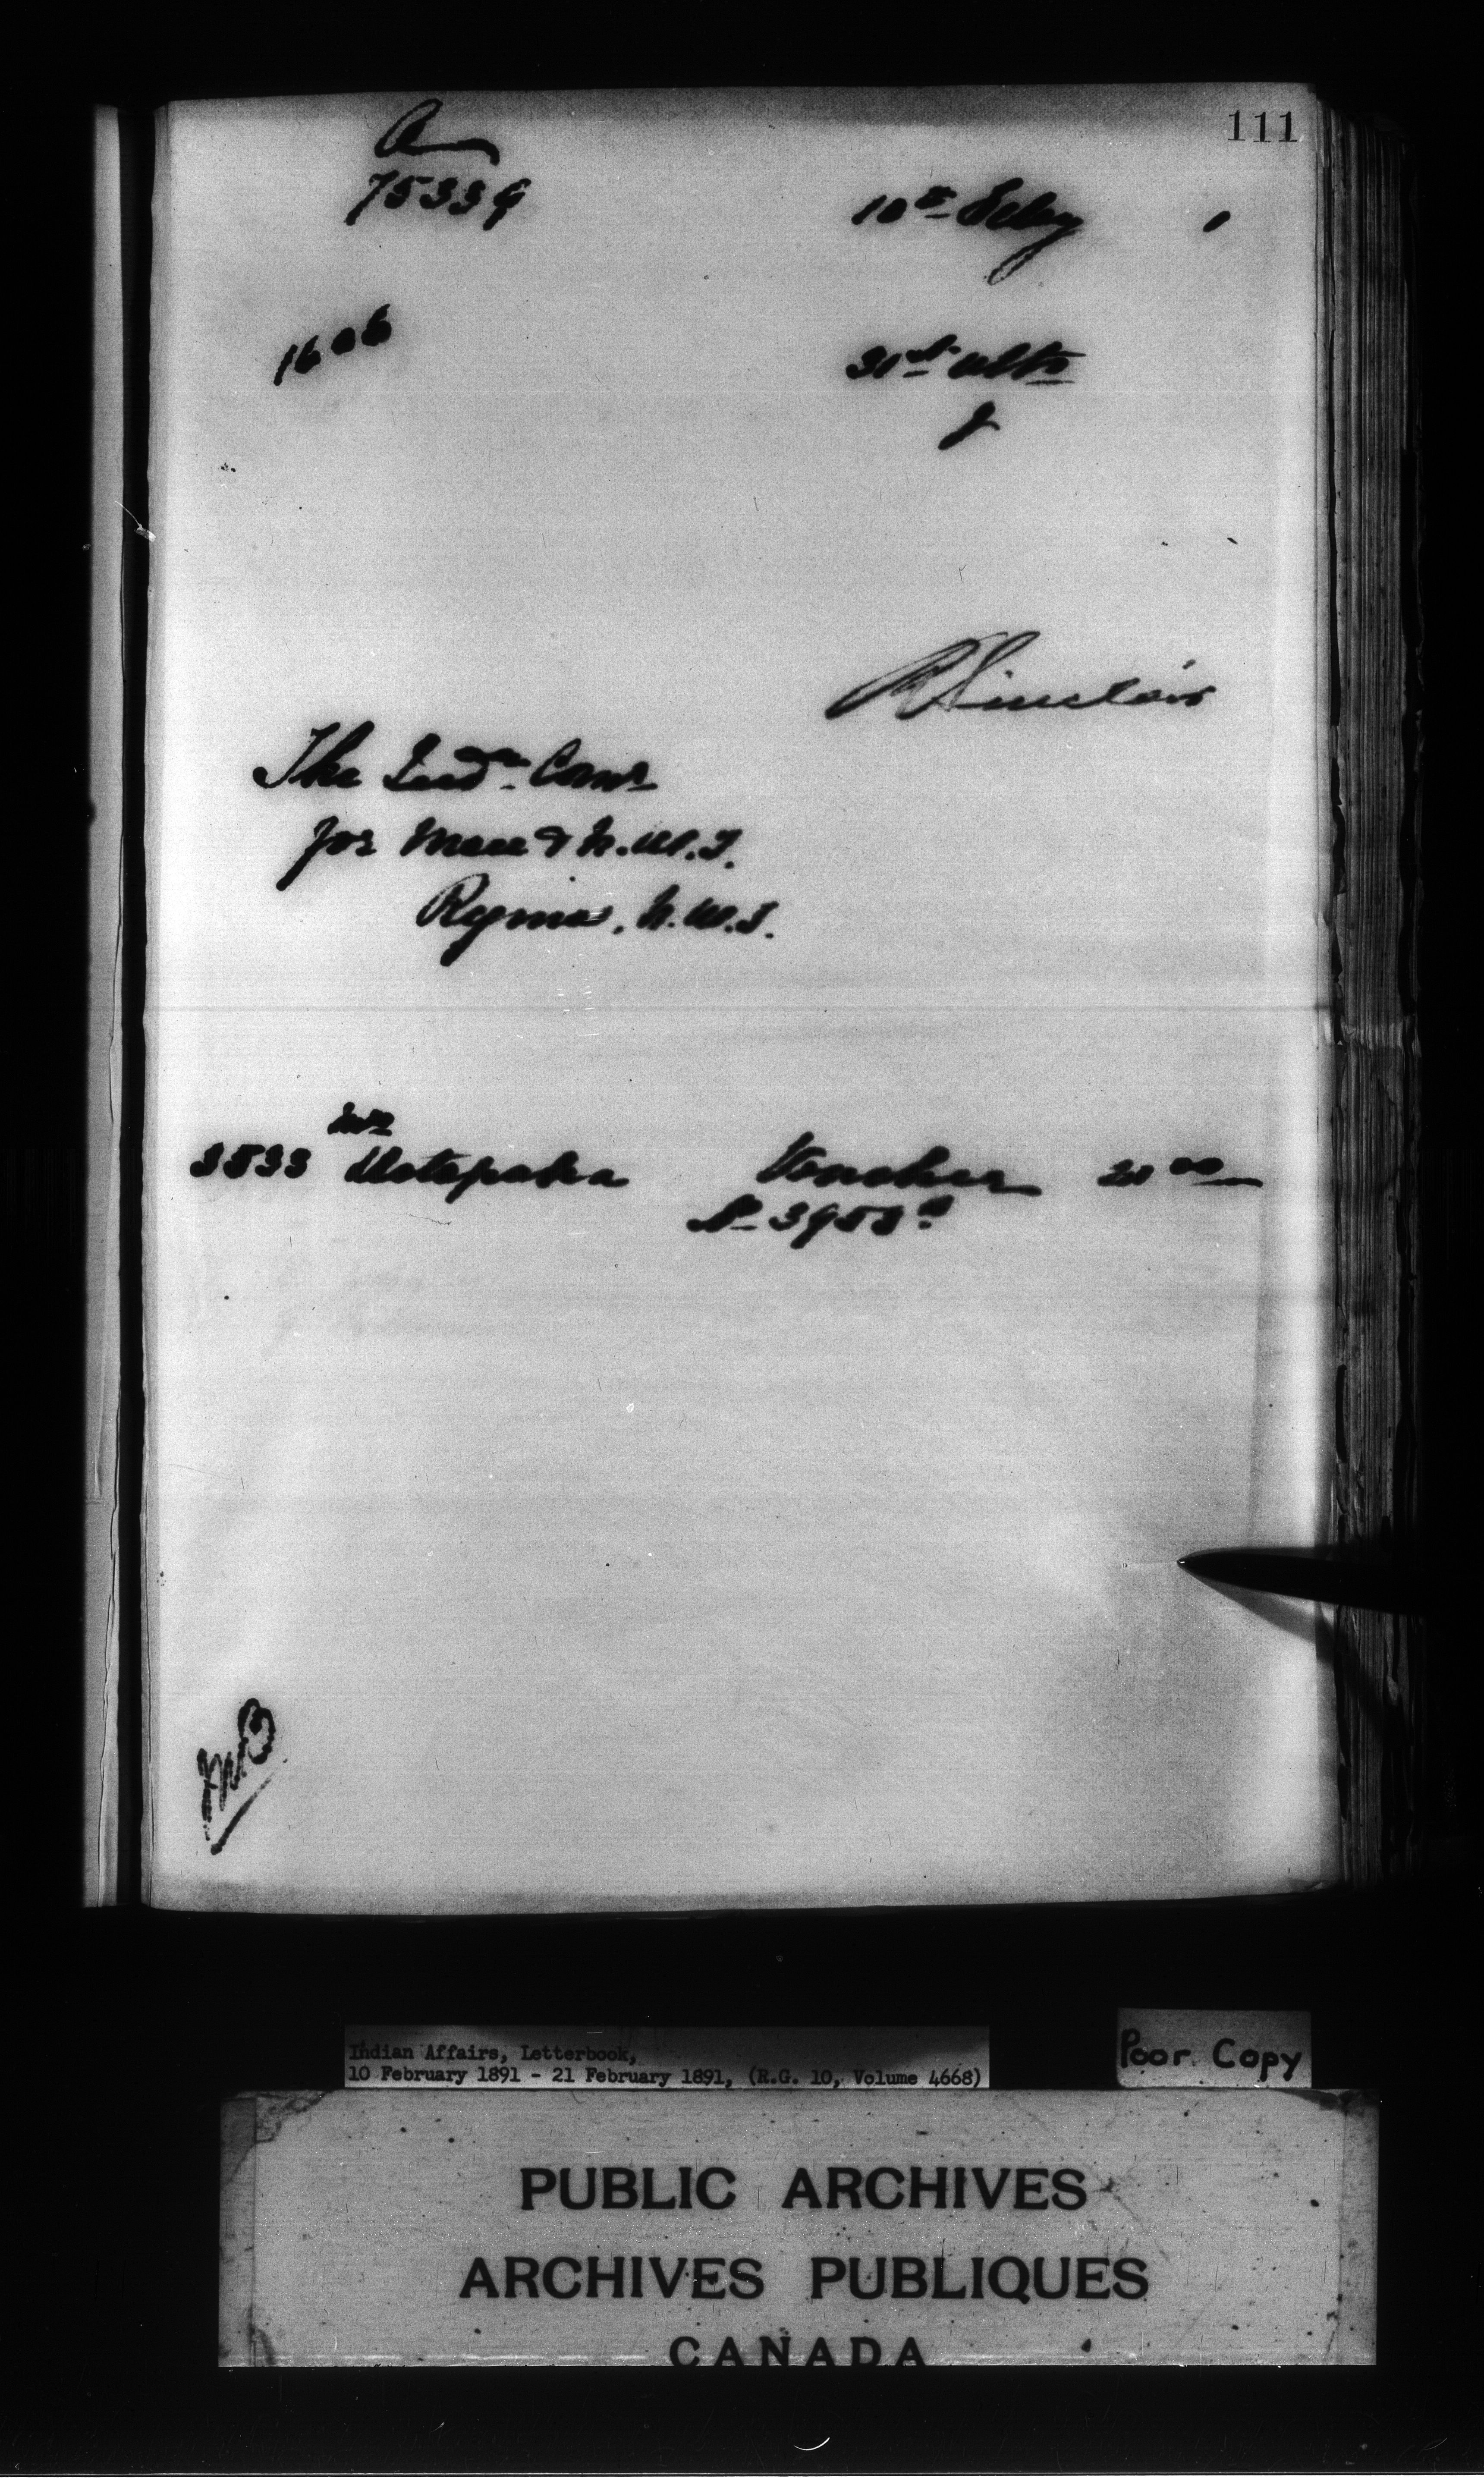 111
A
75339
10th Feby 1
1606
31st ulto
R Sinclair
The Indn. Comr
for Man & N.W.T.
Regina, N.W.T.
3533 Voucher 20 00
Indian Affairs, Letterbook,
10 February 1891 - 21 February 1891, (R.G. 10, Volume 4668)
Poor Copy
PUBLIC ARCHIVES
ARCHIVES PUBLIQUES
CANADA